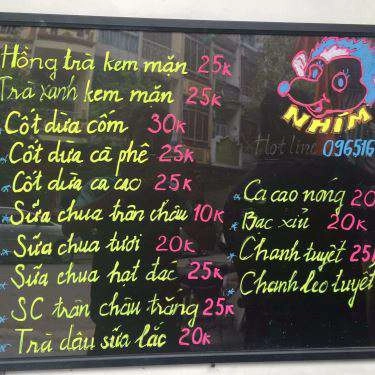 Hồng trà kem mặn 25K
Trà xanh kem mặn 25K
Cốt dừa cốm 30K
Cốt dừa cà phê 25K
Cốt dừa ca cao 25K
Sữa chua trân châu 10K
Sữa chua tươi 20K
Sữa chua hạt đác 25K
SC trân châu trắng 25K
Trà dâu sữa lắc 20K
NHÍM
Hotline 096516
Ca cao nóng 20
Bạc xỉu 20K
Chanh tuyết 25K
Chanh leo tuyết